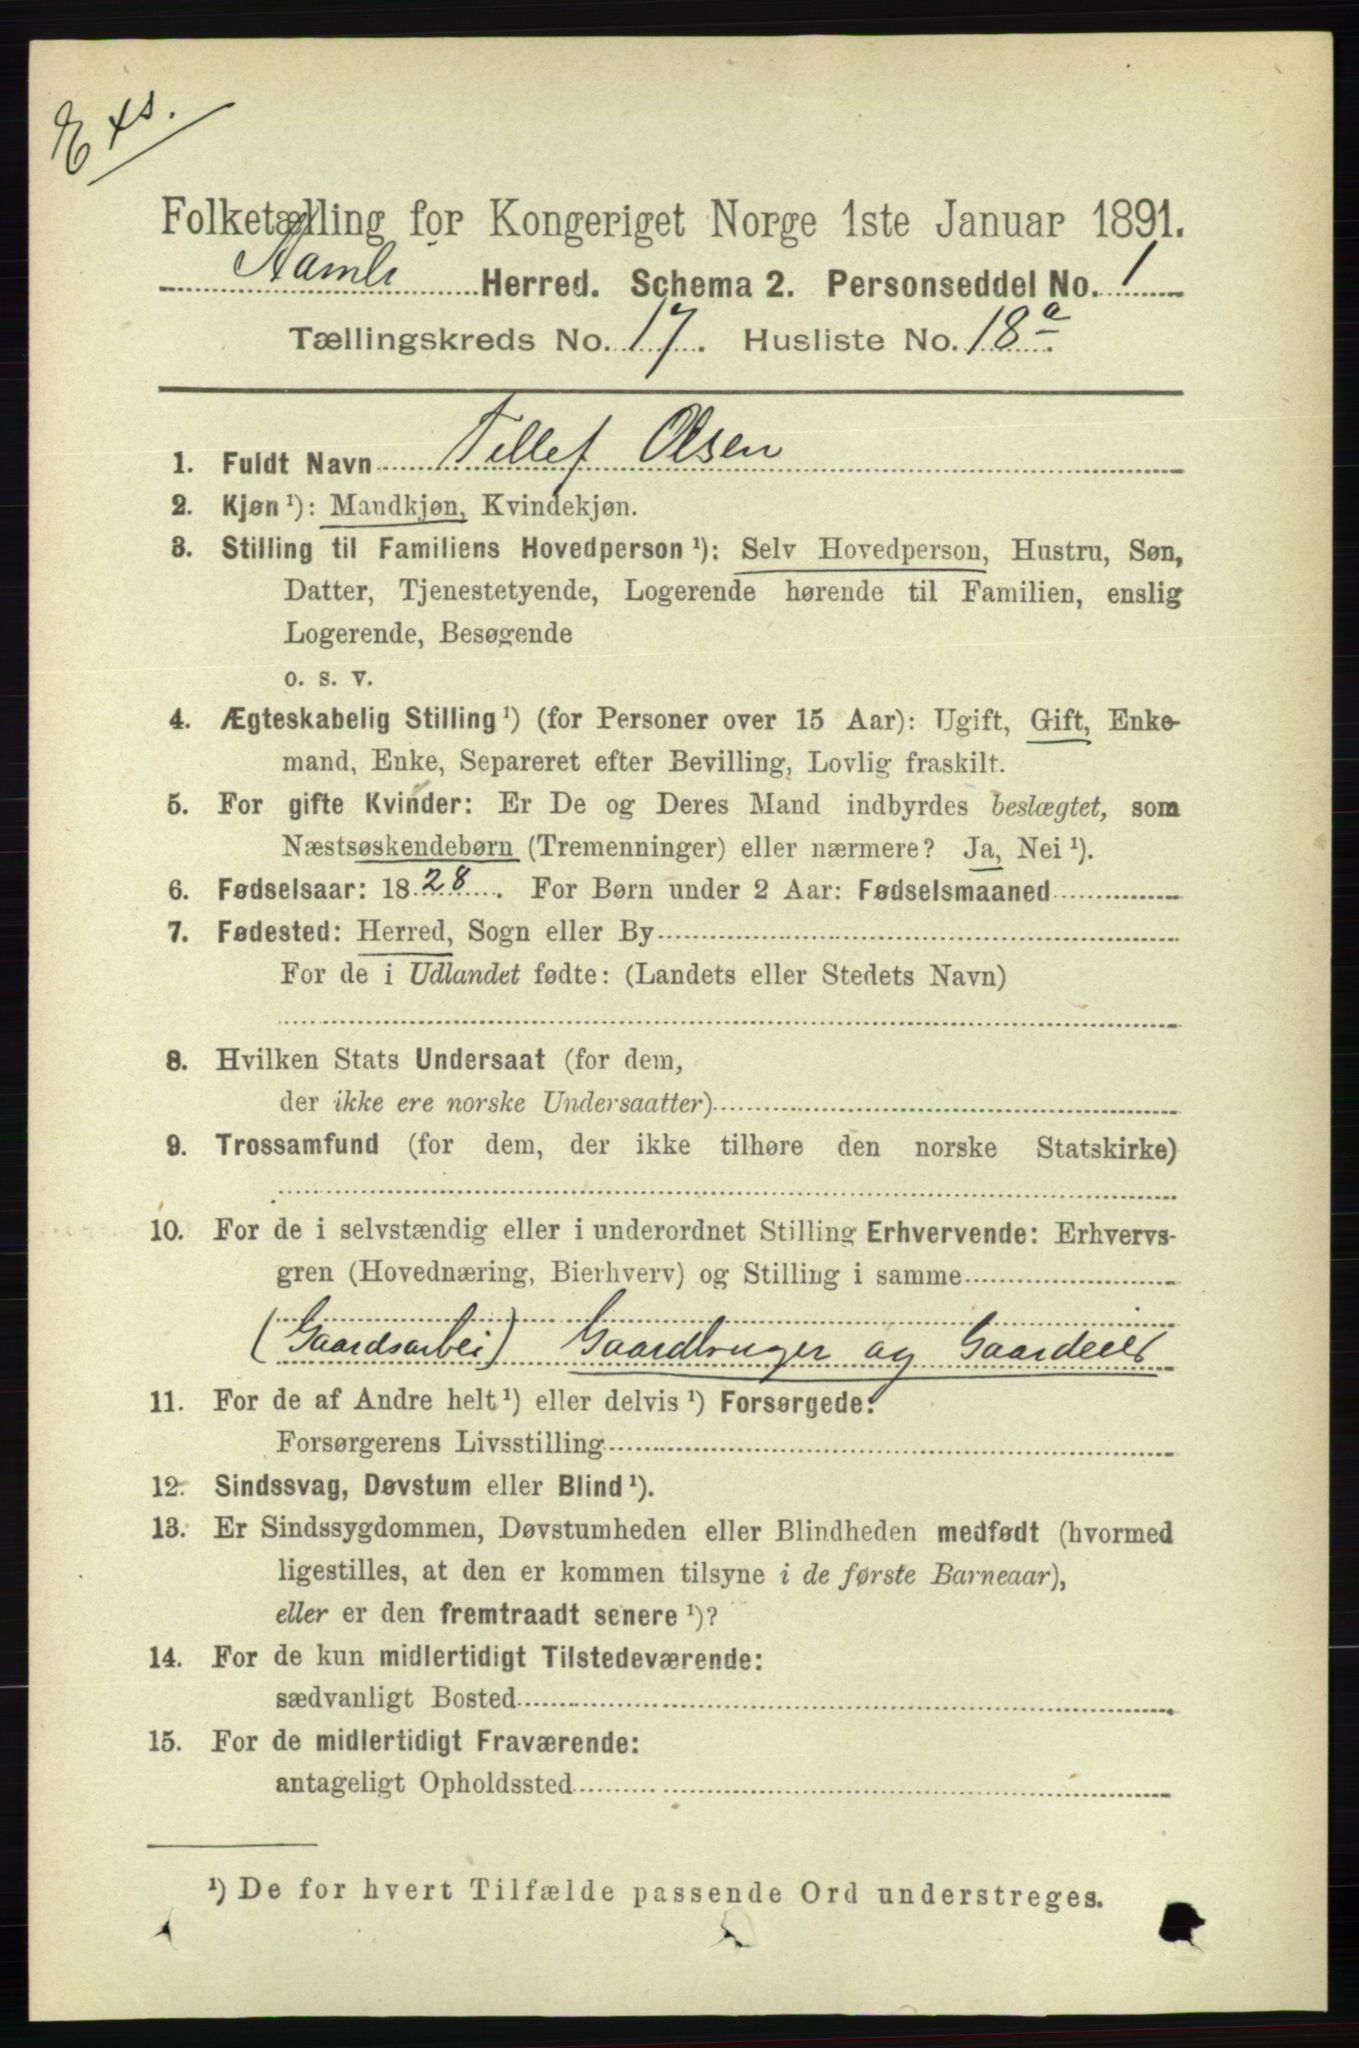 Exs.
Folketælling for Kongeriget Norge 1ste Januar 1891.
Aamli Herred. Schema 2. Personseddel No. 1
Tællingskreds No. 17. Husliste No. 18a.
1. Fuldt Navn Tellef Olsen
2. Kjøn ¹): Mandkjøn, Kvindekjøn.
3. Stilling til Familiens Hovedperson ¹): Selv Hovedperson, Hustru, Søn,
Datter, Tjenestetyende, Logerende hørende til Familien, enslig
Logerende, Besøgende
o. s. v.
4. Ægteskabelig Stilling ¹) (for Personer over 15 Aar): Ugift, Gift, Enke-
mand, Enke, Separeret efter Bevilling, Lovlig fraskilt.
5. For gifte Kvinder: Er De og Deres Mand indbyrdes beslægtet, som
Næstsøskendebørn (Tremenninger) eller nærmere? Ja, Nei ¹).
6. Fødselsaar: 1828. For Børn under 2 Aar: Fødselsmaaned
7. Fødested: Herred, Sogn eller By
For de i Udlandet fødte: (Landets eller Stedets Navn)
8. Hvilken Stats Undersaat (for dem,
der ikke ere norske Undersaatter)
9. Trossamfund (for dem, der ikke tilhøre den norske Statskirke)
10. For de i selvstændig eller i underordnet Stilling Erhvervende: Erhvervs-
gren (Hovednæring, Bierhverv) og Stilling i samme
(Gaardsarbei) Gaardbruger og Gaardeier
11. For de af Andre helt ¹) eller delvis ¹) Forsørgede:
Forsørgerens Livsstilling
12. Sindssvag, Døvstum eller Blind ¹).
13. Er Sindssygdommen, Døvstumheden eller Blindheden medfødt (hvormed
ligestilles, at den er kommen tilsyne i de første Barneaar),
eller er den fremtraadt senere ¹)?
14. For de kun midlertidigt Tilstedeværende:
sædvanligt Bosted
15. For de midlertidigt Fraværende:
antageligt Opholdssted
¹) De for hvert Tilfælde passende Ord understreges.